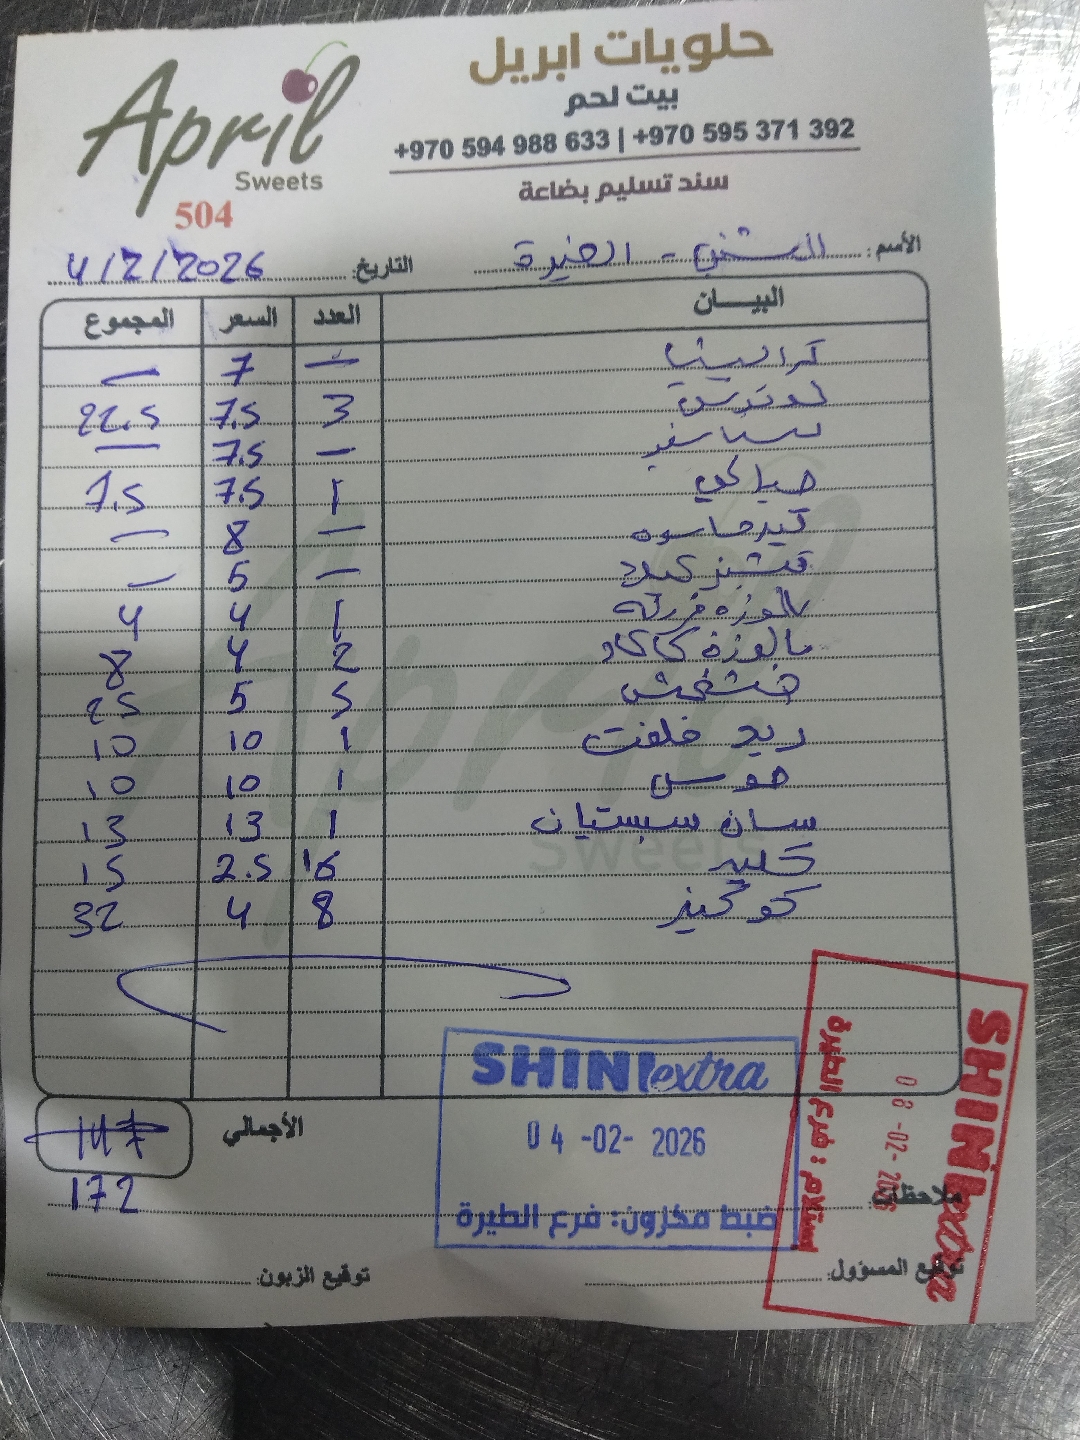 April
Sweets
504
حلويات ابريل
بيت لحم
+970 594 988 633 | +970 595 371 392
سند تسليم بضاعة
الأسم: الشني - الطيرة التاريخ: 4/2/2026
البيــان العدد السعر المجموع
— 7 —
لوتس 3 7.5 22.5
— 7.5 —
1 7.5 7.5
— 8 —
— 5 —
1 4 4
مالوزة كاكاو 2 4 8
خشخش 5 5 25
ريد فلفت 1 10 10
موس 1 10 10
سان سبستيان 1 13 13
2.5 15
كوكيز 8 4 32
الأجمالي
172
SHINI extra
04 -02- 2026
ضبط مخزون: فرع الطيرة
SHINI extra
08 -02- 2026
إستلام: فرع الطيرة
ملاحظات:
توقيع المسؤول: توقيع الزبون: